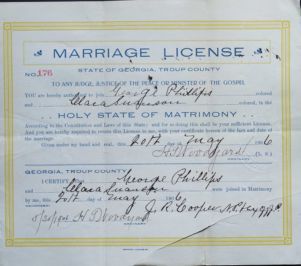 MARRIAGE LICENSE
No. 176
STATE OF GEORGIA, TROUP COUNTY
TO ANY JUDGE, JUSTICE OF THE PEACE OR MINISTER OF THE GOSPEL
You are hereby authorized to join George Phillips colored
and Clara Swanson colored, in the
HOLY STATE OF MATRIMONY
According to the Constitution and Laws of this State; and for so doing this shall be your sufficient License.
And you are hereby required to return this License to me, with your certificate hereon of the fact and date of
the marriage.
Given under my hand and seal, this 20th day of May 1906
H D Woodyard (L. S.)
GEORGIA, TROUP COUNTY
I CERTIFY that George Phillips
and Clara Swanson were joined in Matrimony
by me, this 20th day of May 1906
H D Woodyard J. R. Cooper